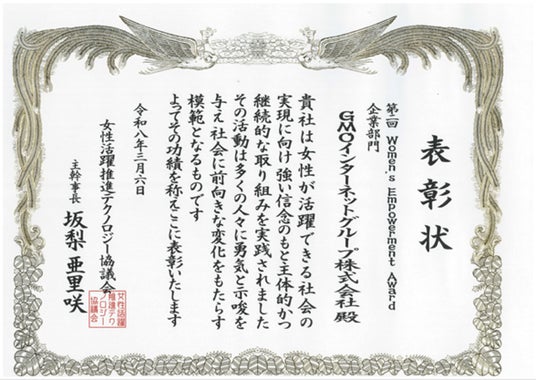 表彰状
第二回 Women's Empowerment Award
企業部門
GMOインターネットグループ株式会社 殿
貴社は女性が活躍できる社会の
実現に向け強い信念のもと主体的かつ
継続的な取り組みを実践されました
その活動は多くの人々に勇気と示唆を
与え社会に前向きな変化をもたらす
模範となるものです
よってその功績を称えここに表彰いたします
令和八年三月六日
女性活躍推進テクノロジー協議会
主幹事長 坂梨 亜里咲
女性活躍
推進テク
ノロジー
協議会